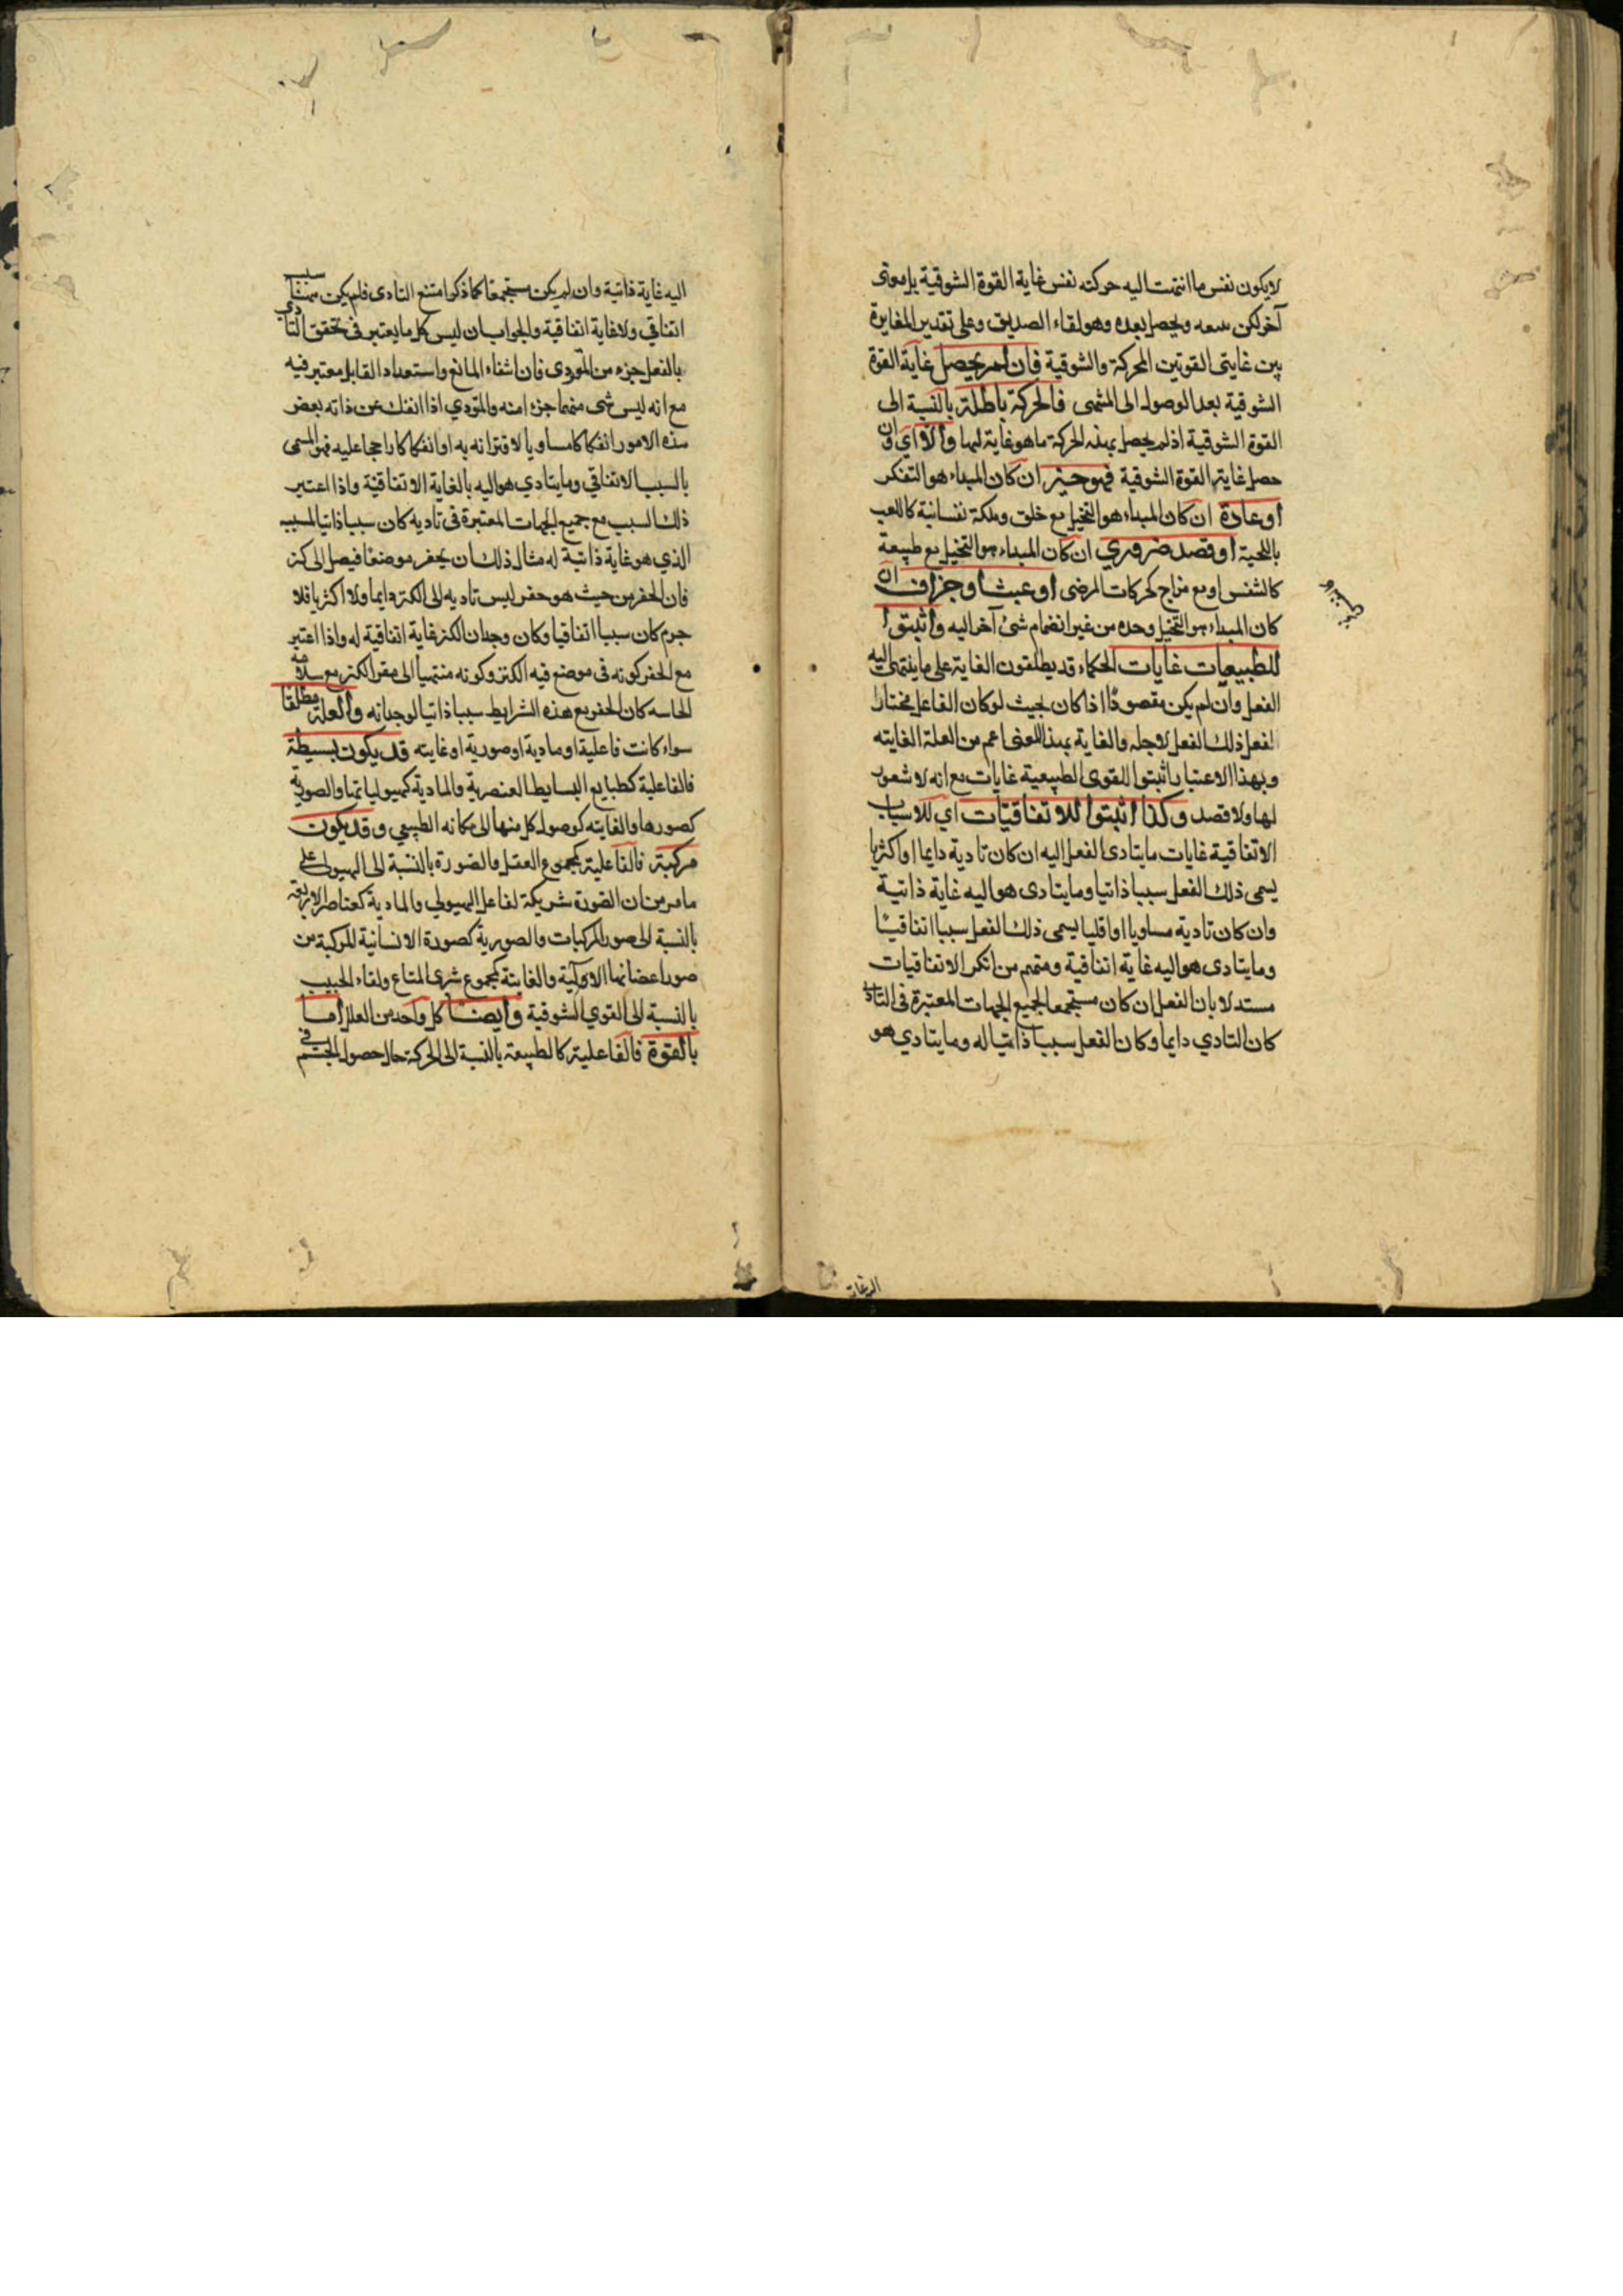 لا يكون نفس ما انتهت اليه حركته نفس غاية القوة الشوقية بل معنى
آخر لكن يتبعه ويحصل بعده وهو لقاء الصديق وعلى تقدير المغايرة
بين غايتى القوتين المحركة والشوقية فان لم يحصل غاية القوة
الشوقية بعد الوصول الى المنتهى فالحركة باطلة بالنسبة الى
القوة الشوقية اذ لم يحصل بهذه الحركة ما هو غاية لها والا اي وان
حصل غاية القوة الشوقية فهو خير ان كان المبداء هو التفكر
او عادة ان كان المبداء هو التخيل مع خلق وملكة نفسانية كاللعب
باللحية او قصد ضروري ان كان المبداء هو التخيل مع طبيعة
كالتنفس او مع مزاج كحركات المرضى او عبث او جزاف ان
كان المبداء هو التخيل وحده من غير انضمام شئ آخر اليه واثبتوا
للطبيعيات غايات الحكماء قد يطلقون الغاية على ما ينتهى اليه
الفعل وان لم يكن مقصودًا اذا كان بحيث لو كان الفاعل مختارا
لفعل ذلك الفعل لاجله والغاية بهذا المعنى اعم من العلة الغايئه
وبهذا الاعتبار اثبتوا للقوى الطبيعية غايات مع انه لا شعور
لها ولا قصد وكذا اثبتوا للاتفاقيات اي للاسباب
الاتفاقية غايات ما يتادى الفعل اليه ان كان تادية دايما او اكثريا
يسمى ذلك الفعل سببا ذاتيا وما يتادى هو اليه غاية ذاتية
وان كان تادية مساويا او اقليا يسمى ذلك الفعل سببا اتفاقيًا
وما يتادى هو اليه غاية اتفاقية ومنهم من انكر الاتفاقيات
مستدلا بان الفعل ان كان مستجمعا لجميع الجهات المعتبرة فى التادى
كان التادي دايما وكان الفعل سببا ذاتيا له وما يتادي هو
اليه غاية ذاتية وان لم يكن مستجمعا كما ذكر امتنع التادى فلم يكن سبب
اتفاقي ولا غاية اتفاقية والجواب ان ليس كل ما يعتبر فى تحقق التادي
بالفعل جزء من المؤدى فان انتفاء المانع واستعداد القابل معتبر فيه
مع انه ليس شى منهما جزءا منه والمؤدي اذا انفك عن ذاته بعض
هذه الامور انفكاكا مساويا لاقترانه به او انفكاكا راجحا عليه فهو المسمى
بالسبب الاتفاقي وما يتادي هو اليه بالغاية الاتفاقية واذا اعتبر
ذلك السبب مع جميع الجهات المعتبرة فى تاديه كان سببا ذاتيا لمسببه
الذي هو غاية ذاتية له مثال ذلك ان يحفر موضعًا فيصل الى كنز
فان الحفر من حيث هو حفر ليس تاديه الى الكنز دايما ولا اكثريا فلا
جرم كان سببا اتفاقيا وكان وجدان الكنز غاية اتفاقية له واذا اعتبر
مع الحفر كونه فى موضع فيه الكنز وكونه منتهيا الى مقر الكنز مع سلامة
الحاسه كان الحفر مع هذه الشرايط سببا ذاتيا لوجدانه والعلة مطلقا
سواء كانت فاعلية او مادية او صورية او غايئه قد يكون بسيطة
فالفاعلية كطبايع البسايط العنصرية والمادية كهيولياتها والصورية
كصورها والغايئه كوصول كل منها الى مكانه الطبيعي وقد يكون
مركبة فالفاعلية كمجموع العقل والصورة بالنسبة الى الهيولى على
ما مر من ان الصورة شريكة لفاعل الهيولي والمادية كعناصر الاربعة
بالنسبة الى صور المركبات والصورية كصورة الانسانية المركبة من
صور اعضائها الاولية والغايئة كمجموع شرى المتاع ولقاء الحبيب
بالنسبة الى القوي الشوقية وايضا كل واحد من العلل اما
بالقوة فالفاعلية كالطبيعة بالنسبة الى الحركة حال حصول الجسم فى